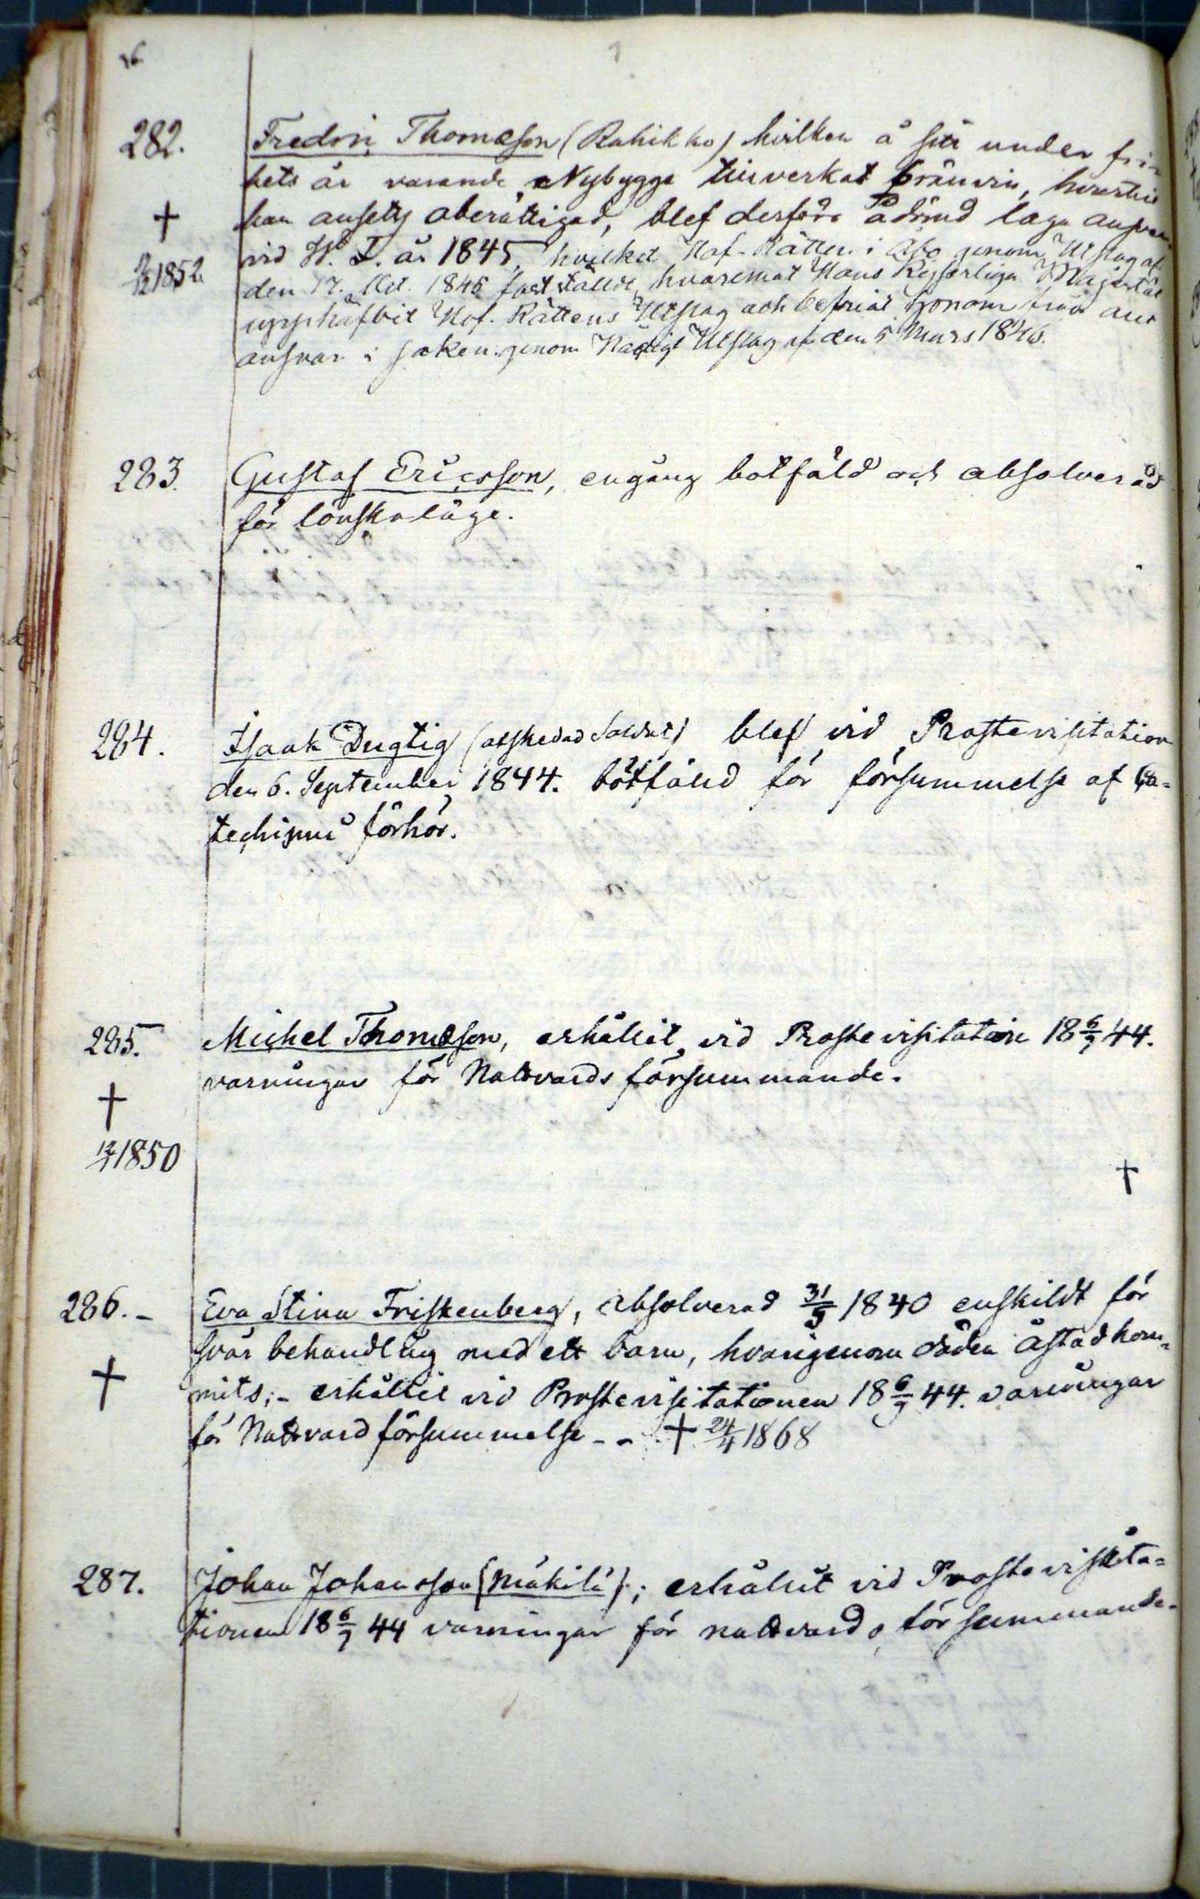 282. Fredric Thomæson (Rahikko) hvilken å sitt under fri-
hets år varande Nybygge tillverkat bränvin, hvartill
† han ansetts oberättigad, blef derföre ådömd laga ansvar
vid H. T. år 1845, hvilket Hof-Rätten i Åbo genom Utslag af
1852 den 17. Oct. 1845 fastställt, hvaremot Hans Kejserliga Majestät
upphäfvit Hof-Rättens Utslag och befriat honom från allt
ansvar i saken genom Nådigt Utslag af den 5 Mars 1846.
283. Gustaf Ericsson, engång botfäld och absolverad
för lönskaläge.
284. Isaak Dugtig (afskedad Soldat) blef vid Prostevisitation
den 6. September 1844. botfälld för försummelse af Ca-
techismi förhör.
285. Michel Thomæson, erhållit vid Prostevisitation 18 6/9 44.
varningar för Nattvards försummande.
†
1850
†
286. - Eva Stina Friskenberg, absolverad 31/5 1840 enskildt för
svår behandling med ett barn, hvarigenom döden åstadkom-
† mits; - erhållit vid Prostevisitationen 18 6/9 44. varningar
för Nattvard försummelse - - † 24/4 1868
287. Johan Johansson (Mäkilä); erhållit vid Prostevisita-
tionen 18 6/9 44 varningar för nattvards försummande.